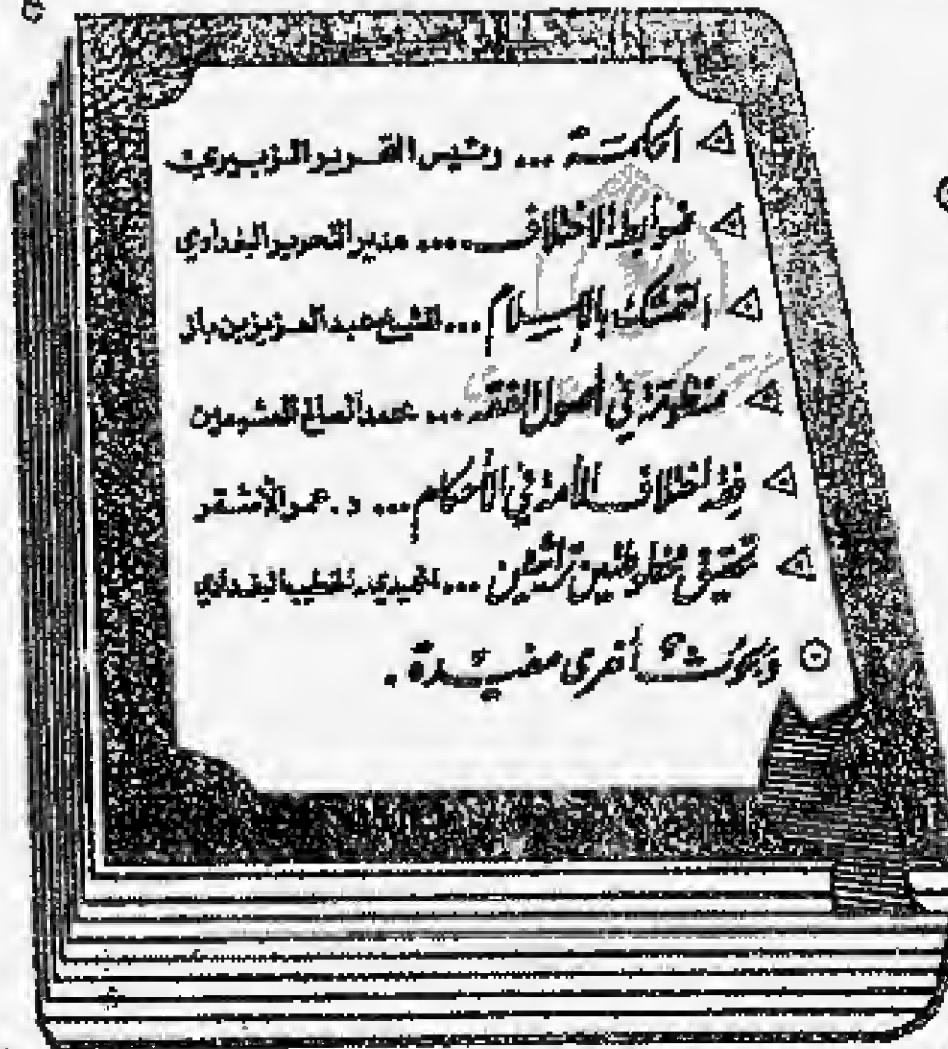 الحكمة ... رئيس التحرير الزبيري
ضوابط الاختلاف ... مدير التحرير البغدادي
التمسك بالإسلام ... للشيخ عبد العزيز بن باز
منظومة في أصول الفقه ... محمد الصالح العثيمين
فقه اختلاف الأمة في الأحكام ... د. عمر الأشقر
تحقيق مخطوطتين تراثيتين ... للخطيب البغدادي
وبحوث أخرى مفيدة .